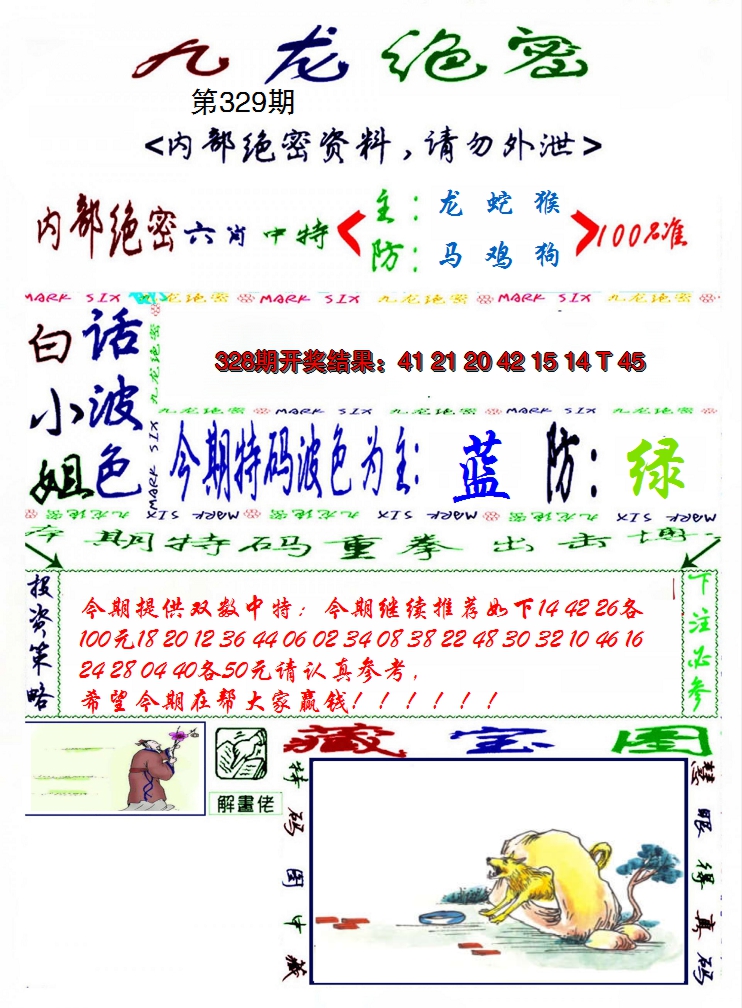 九龙绝密
第329期
<内部绝密资料,请勿外泄>
内部绝密六肖中特
主：龙 蛇 猴
防：马 鸡 狗
100%准
MARK SIX 九龙绝密 MARK SIX 九龙绝密 MARK SIX 九龙绝密
白小姐
话波色
九龙绝密
MARK SIX
328期开奖结果：41 21 20 42 15 14 T 45
九龙绝密 MARK SIX 九龙绝密 MARK SIX 九龙绝密
今期特码波色为主：蓝 防：绿
MARK SIX 九龙绝密 MARK SIX 九龙绝密 MARK SIX
本期特码重拳出击博
投资策略
今期提供双数中特；今期继续推荐如下14 42 26各
100元18 20 12 36 44 06 02 34 08 38 22 48 30 32 10 46 16
24 28 04 40各50元请认真参考，
希望今期在帮大家赢钱！！！！！！
下注必参
解畫佬
藏宝图
特码图中藏
慧眼得真码